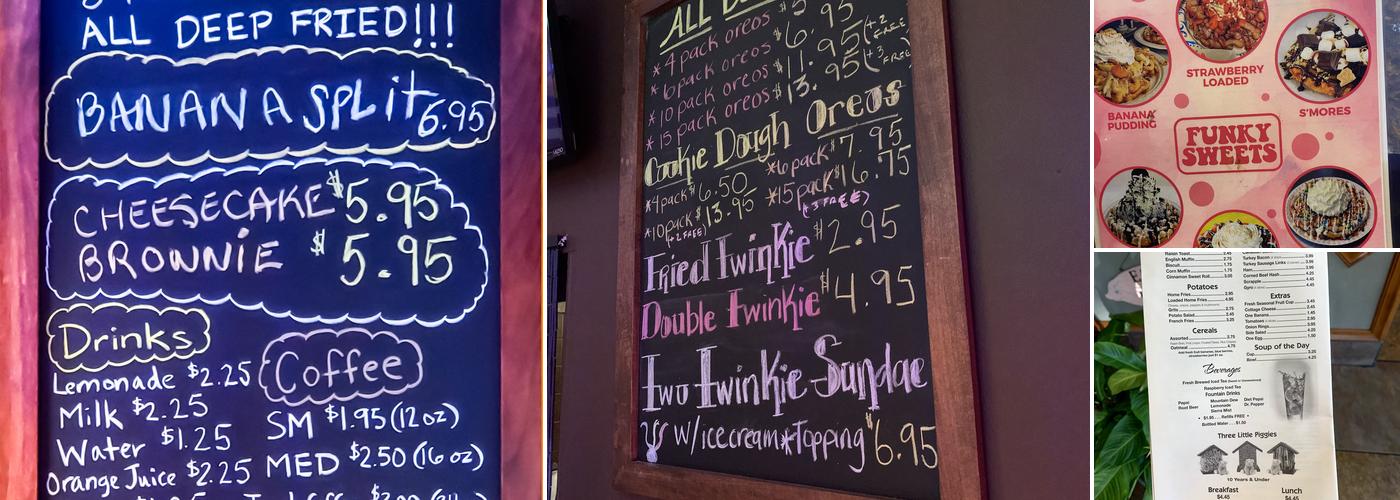 ALL DEEP FRIED!!!
BANANA SPLIT 6.95
CHEESECAKE $5.95
BROWNIE $5.95
Drinks
Lemonade $2.25
Milk $2.25
Water $1.25
Orange Juice $2.25
Coffee
SM $1.95 (12 oz)
MED $2.50 (16 oz)
ALL
*4 pack oreos $5
*6 pack oreos $6.95
*10 pack oreos $11.95 (+2 FREE)
*15 pack oreos $13.95 (+3 FREE
Cookie Dough Oreos
*4 pack $6.50 *6 pack $7.95
*10 pack $13.95 *15 pack $16.75
(+2 FREE) (+3 FREE)
Fried Twinkie $2.95
Double Twinkie $4.95
Two Twinkie Sundae
w/ice cream*Topping $6.95
STRAWBERRY
LOADED
BANANA
PUDDING
S'MORES
FUNKY
SWEETS
Raisin Toast 2.45
English Muffin 2.75
Biscuit 1.75
Corn Muffin 2.75
Cinnamon Sweet Roll 3.00
Potatoes
Home Fries 2.95
Loaded Home Fries 4.95
Grits 2.75
Potato Salad 2.45
French Fries 3.25
Cereals
Assorted 2.75
Oatmeal 4.75
Turkey Bacon
Turkey Sausage Links
Ham 3.95
Corned Beef Hash 4.25
Scrapple 4.45
Gyro 4.45
Extras
Fresh Seasonal Fruit Cup 3.45
Cottage Cheese 2.45
One Banana 1.45
Tomatoes
Onion Rings 3.95
Side Salad 4.25
One Egg 1.50
Soup of the Day
Cup 3.25
Bowl 4.25
Beverages
Fresh Brewed Iced Tea (Sweet or Unsweetened)
Raspberry Iced Tea
Fountain Drinks
Pepsi Mountain Dew Diet Pepsi
Root Beer Lemonade Dr. Pepper
Sierra Mist
• $1.95 ... Refills FREE •
Bottled Water ... $1.50
Three Little Piggies
10 Years & Under
Breakfast
$4.45
Lunch
$4.45